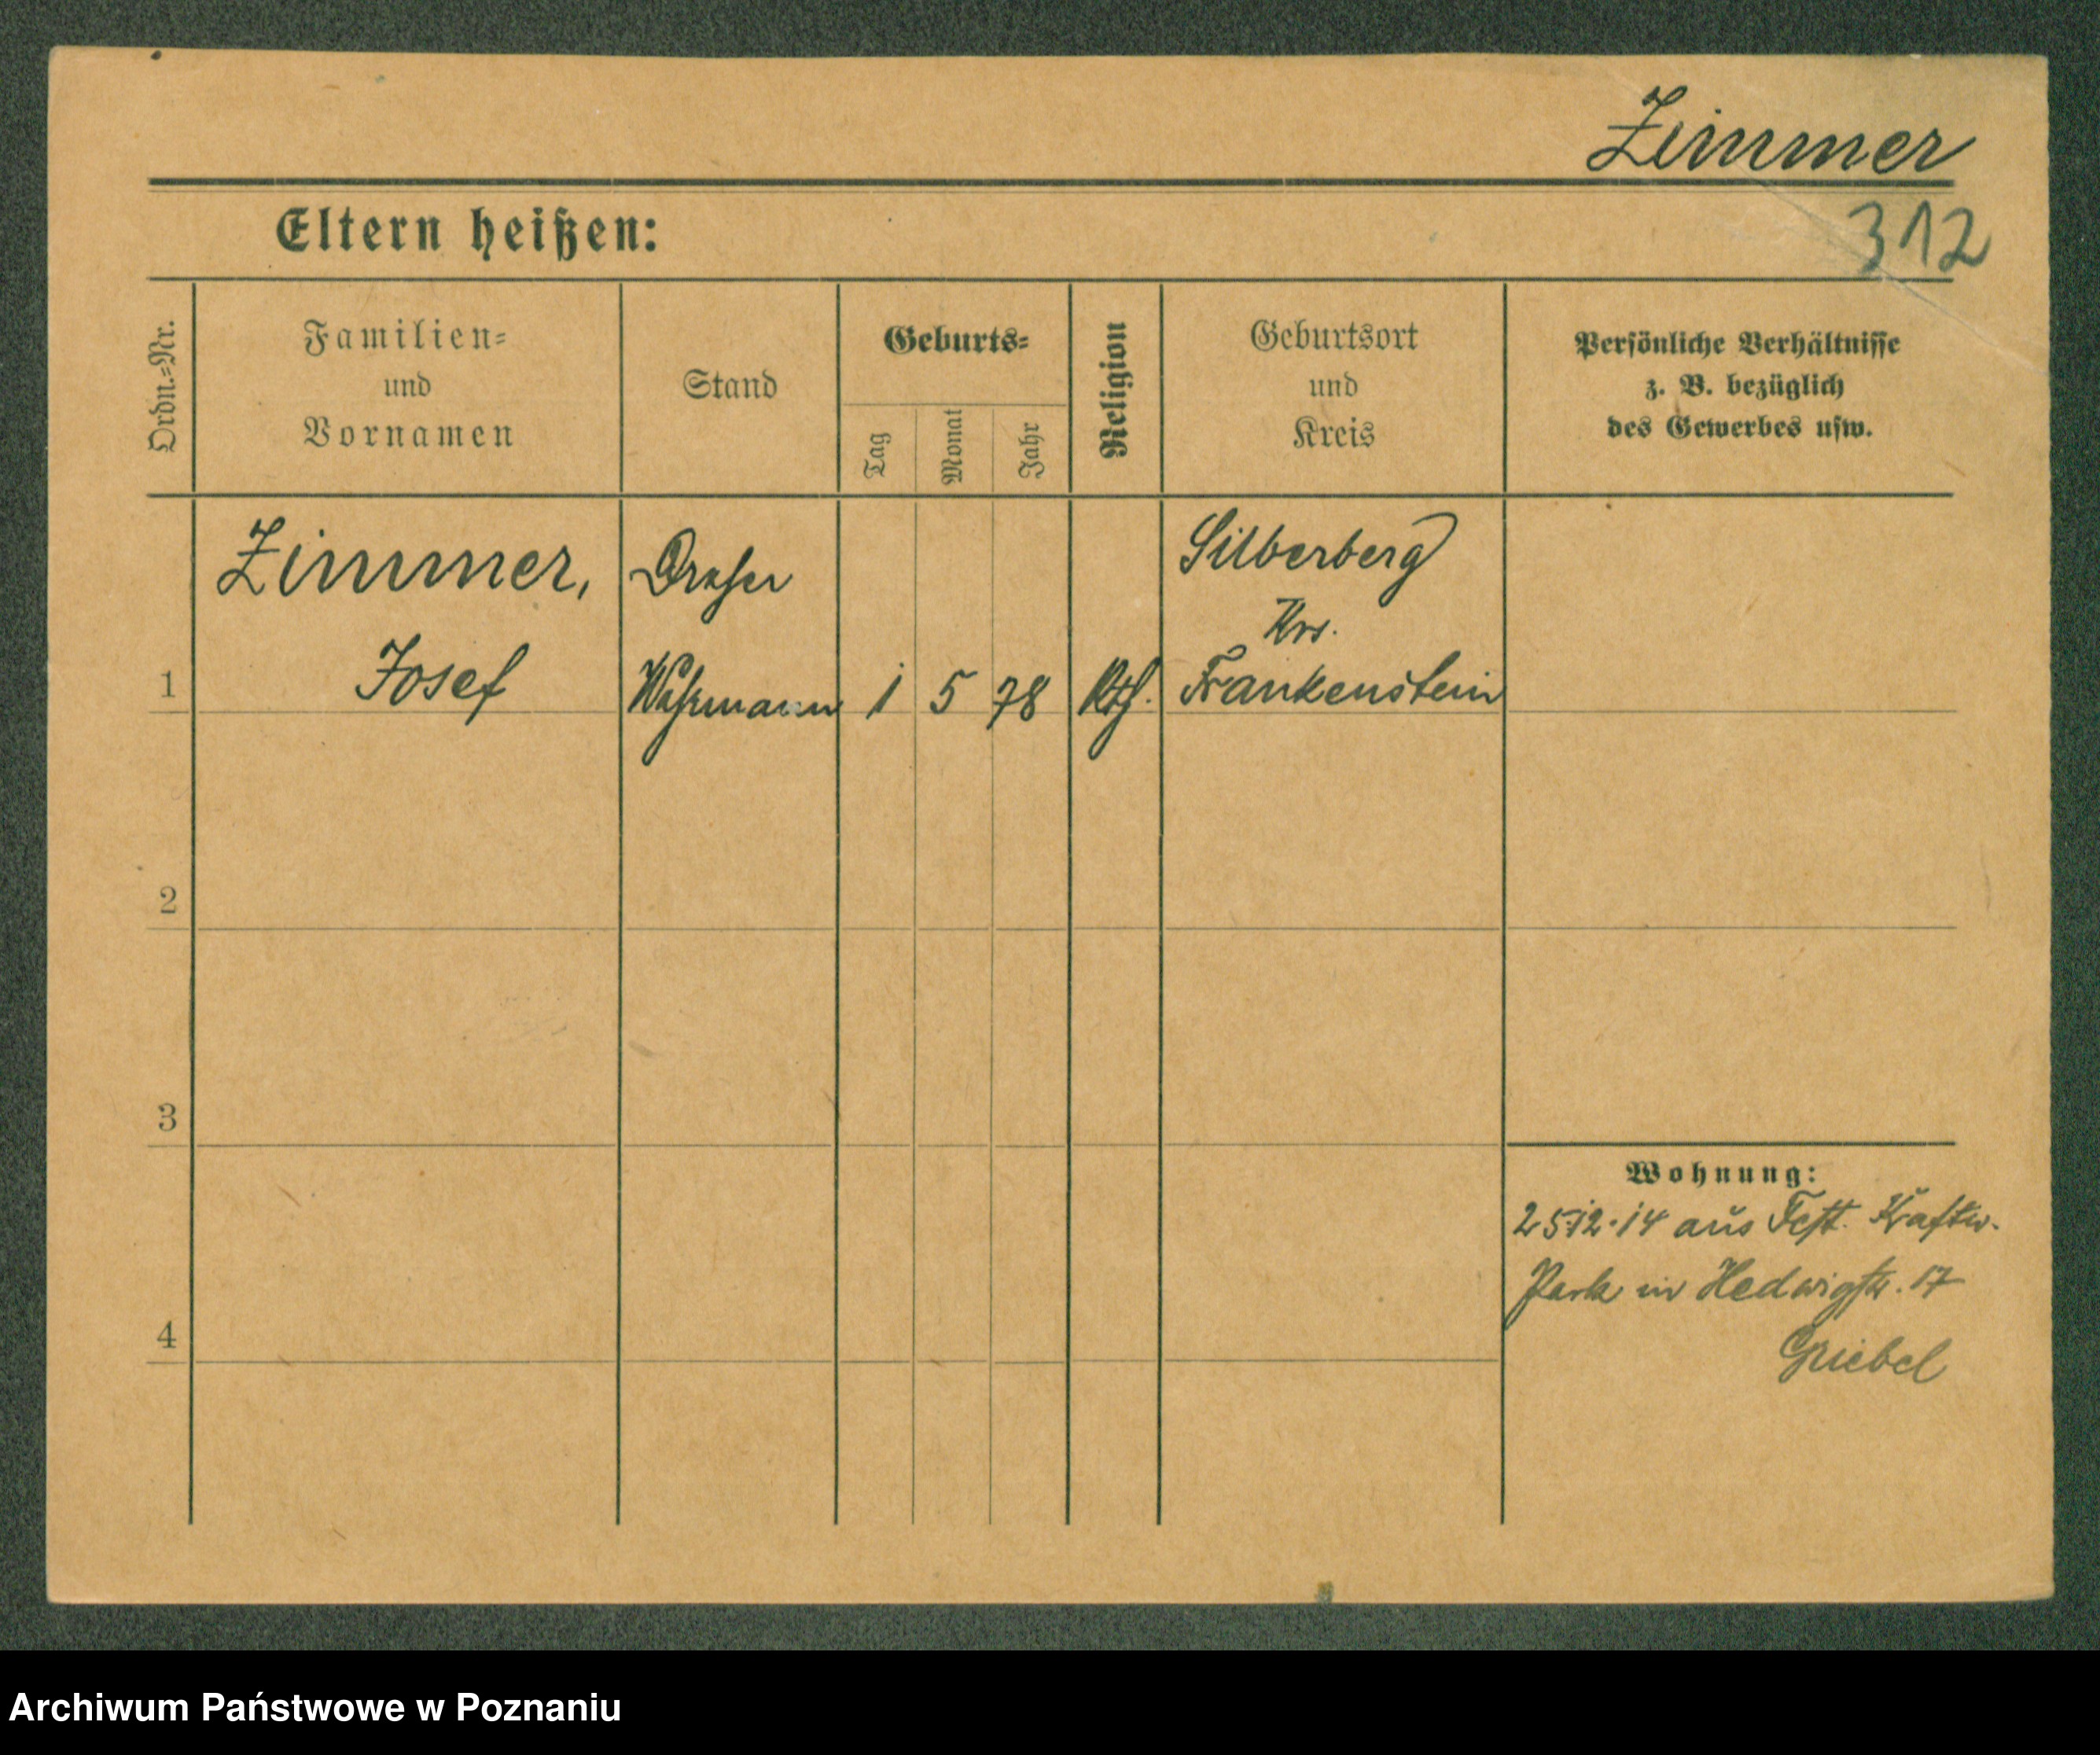 Zimmer
312
Eltern heißen:
Ordn.=Nr.
Familien=
und
Vornamen
Stand
Geburts=
Tag
Monat
Jahr
Religion
Geburtsort
und
Kreis
Persönliche Verhältnisse
z. B. bezüglich
des Gewerbes usw.
1
Zimmer,
Josef
Wehrmann
1
5
78
Kth.
Silberberg
Krs.
Frankenstein
2
3
4
Wohnung:
25.12.14 aus Fest. Kraftw.
Park in Hedwigstr. 17
Griebel
Archiwum Państwowe w Poznaniu